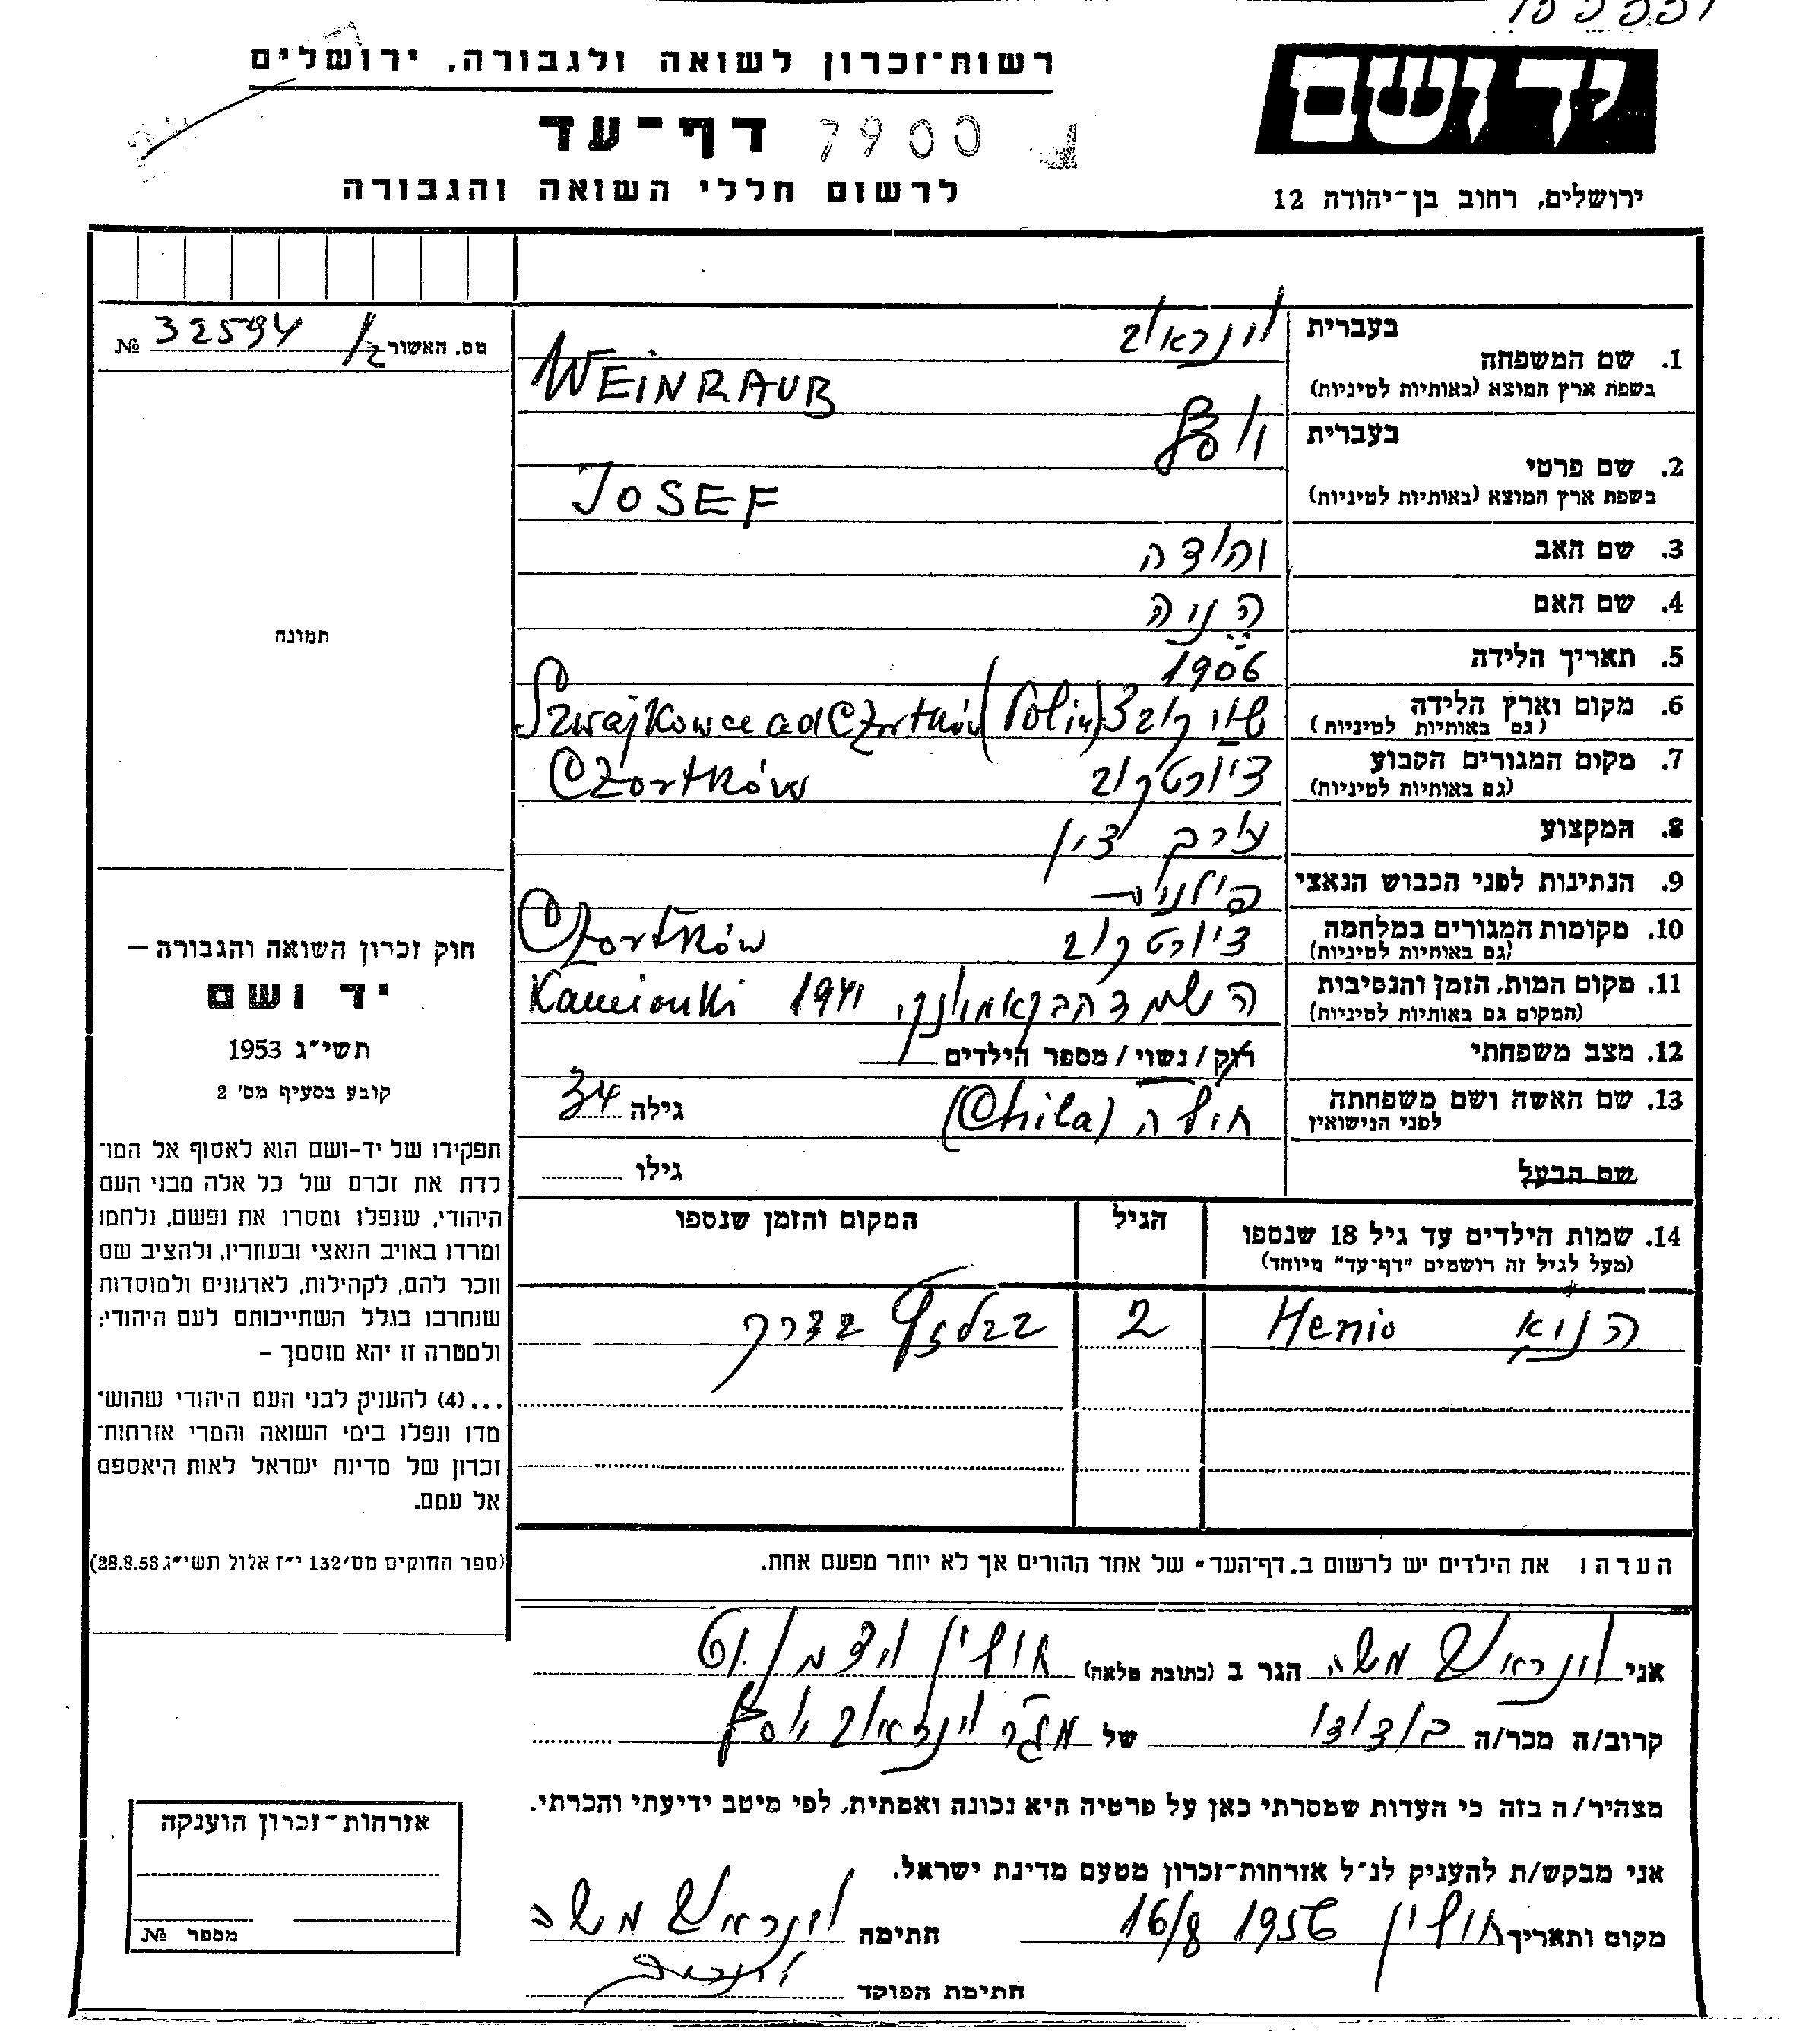 רשות־זכרון לשואה ולגבורה, ירושלים
יד ושם
דף־עד 7900
לרשום חללי השואה והגבורה
ירושלים, רחוב בן־יהודה 12
מס. האשור 32594 №
1. שם המשפחה
בעברית וינראוב
בשפת ארץ המוצא (באותיות לטיניות) WEINRAUB
2. שם פרטי
בעברית יוסף
בשפת ארץ המוצא (באותיות לטיניות) JOSEF
3. שם האב יהודה
4. שם האם הניה
5. תאריך הלידה 1906
6. מקום וארץ הלידה
(גם באותיות לטיניות) Szwajkowce ad Czortków (Polin)
7. מקום המגורים הקבוע צ'ורטקוב
(גם באותיות לטיניות) Czortków
8. המקצוע עורך דין
9. הנתינות לפני הכבוש הנאצי פולנית
10. מקומות המגורים במלחמה צ'ורטקוב
(גם באותיות לטיניות) Czortków
11. מקום המות, הזמן והנסיבות
(המקום גם באותיות לטיניות) Kamionki 1941
12. מצב משפחתי רווק / נשוי / מספר הילדים
13. שם האשה ושם משפחתה
לפני הנישואין חילה (Chila) גילה 34
שם הבעל גילו
14. שמות הילדים עד גיל 18 שנספו
(מעל לגיל זה רושמים "דף־עד" מיוחד)
הגיל
המקום והזמן שנספו
Henio 2
הערה: את הילדים יש לרשום ב"דף־העד" של אחד ההורים אך לא יותר מפעם אחת.
אני וינראוב משה הגר ב (כתובת מלאה) חולון
קרוב/ה מכר/ה בן דוד של וינראוב יוסף
מצהיר/ה בזה כי העדות שמסרתי כאן על פרטיה היא נכונה ואמתית, לפי מיטב ידיעתי והכרתי.
אני מבקש/ת להעניק לנ"ל אזרחות־זכרון מטעם מדינת ישראל.
מקום ותאריך חולון 16/8 1956 חתימה וינראוב משה
חתימת הפוקד
תמונה
חוק זכרון השואה והגבורה –
יד ושם
תשי"ג 1953
קובע בסעיף מס' 2
תפקידו של יד-ושם הוא לאסוף אל המו־
לדת את זכרם של כל אלה מבני העם
היהודי, שנפלו ומסרו את נפשם, נלחמו
ומרדו באויב הנאצי ובעוזריו, ולהציב שם
וזכר להם, לקהילות, לארגונים ולמוסדות
שנחרבו בגלל השתייכותם לעם היהודי;
ולמטרה זו יהא מוסמך –
...(4) להעניק לבני העם היהודי שהוש־
מדו ונפלו בימי השואה והמרי אזרחות־
זכרון של מדינת ישראל לאות היאספם
אל עמם.
(ספר החוקים מס' 132 י"ז אלול תשי"ג 28.8.53)
אזרחות־זכרון הוענקה
מספר №